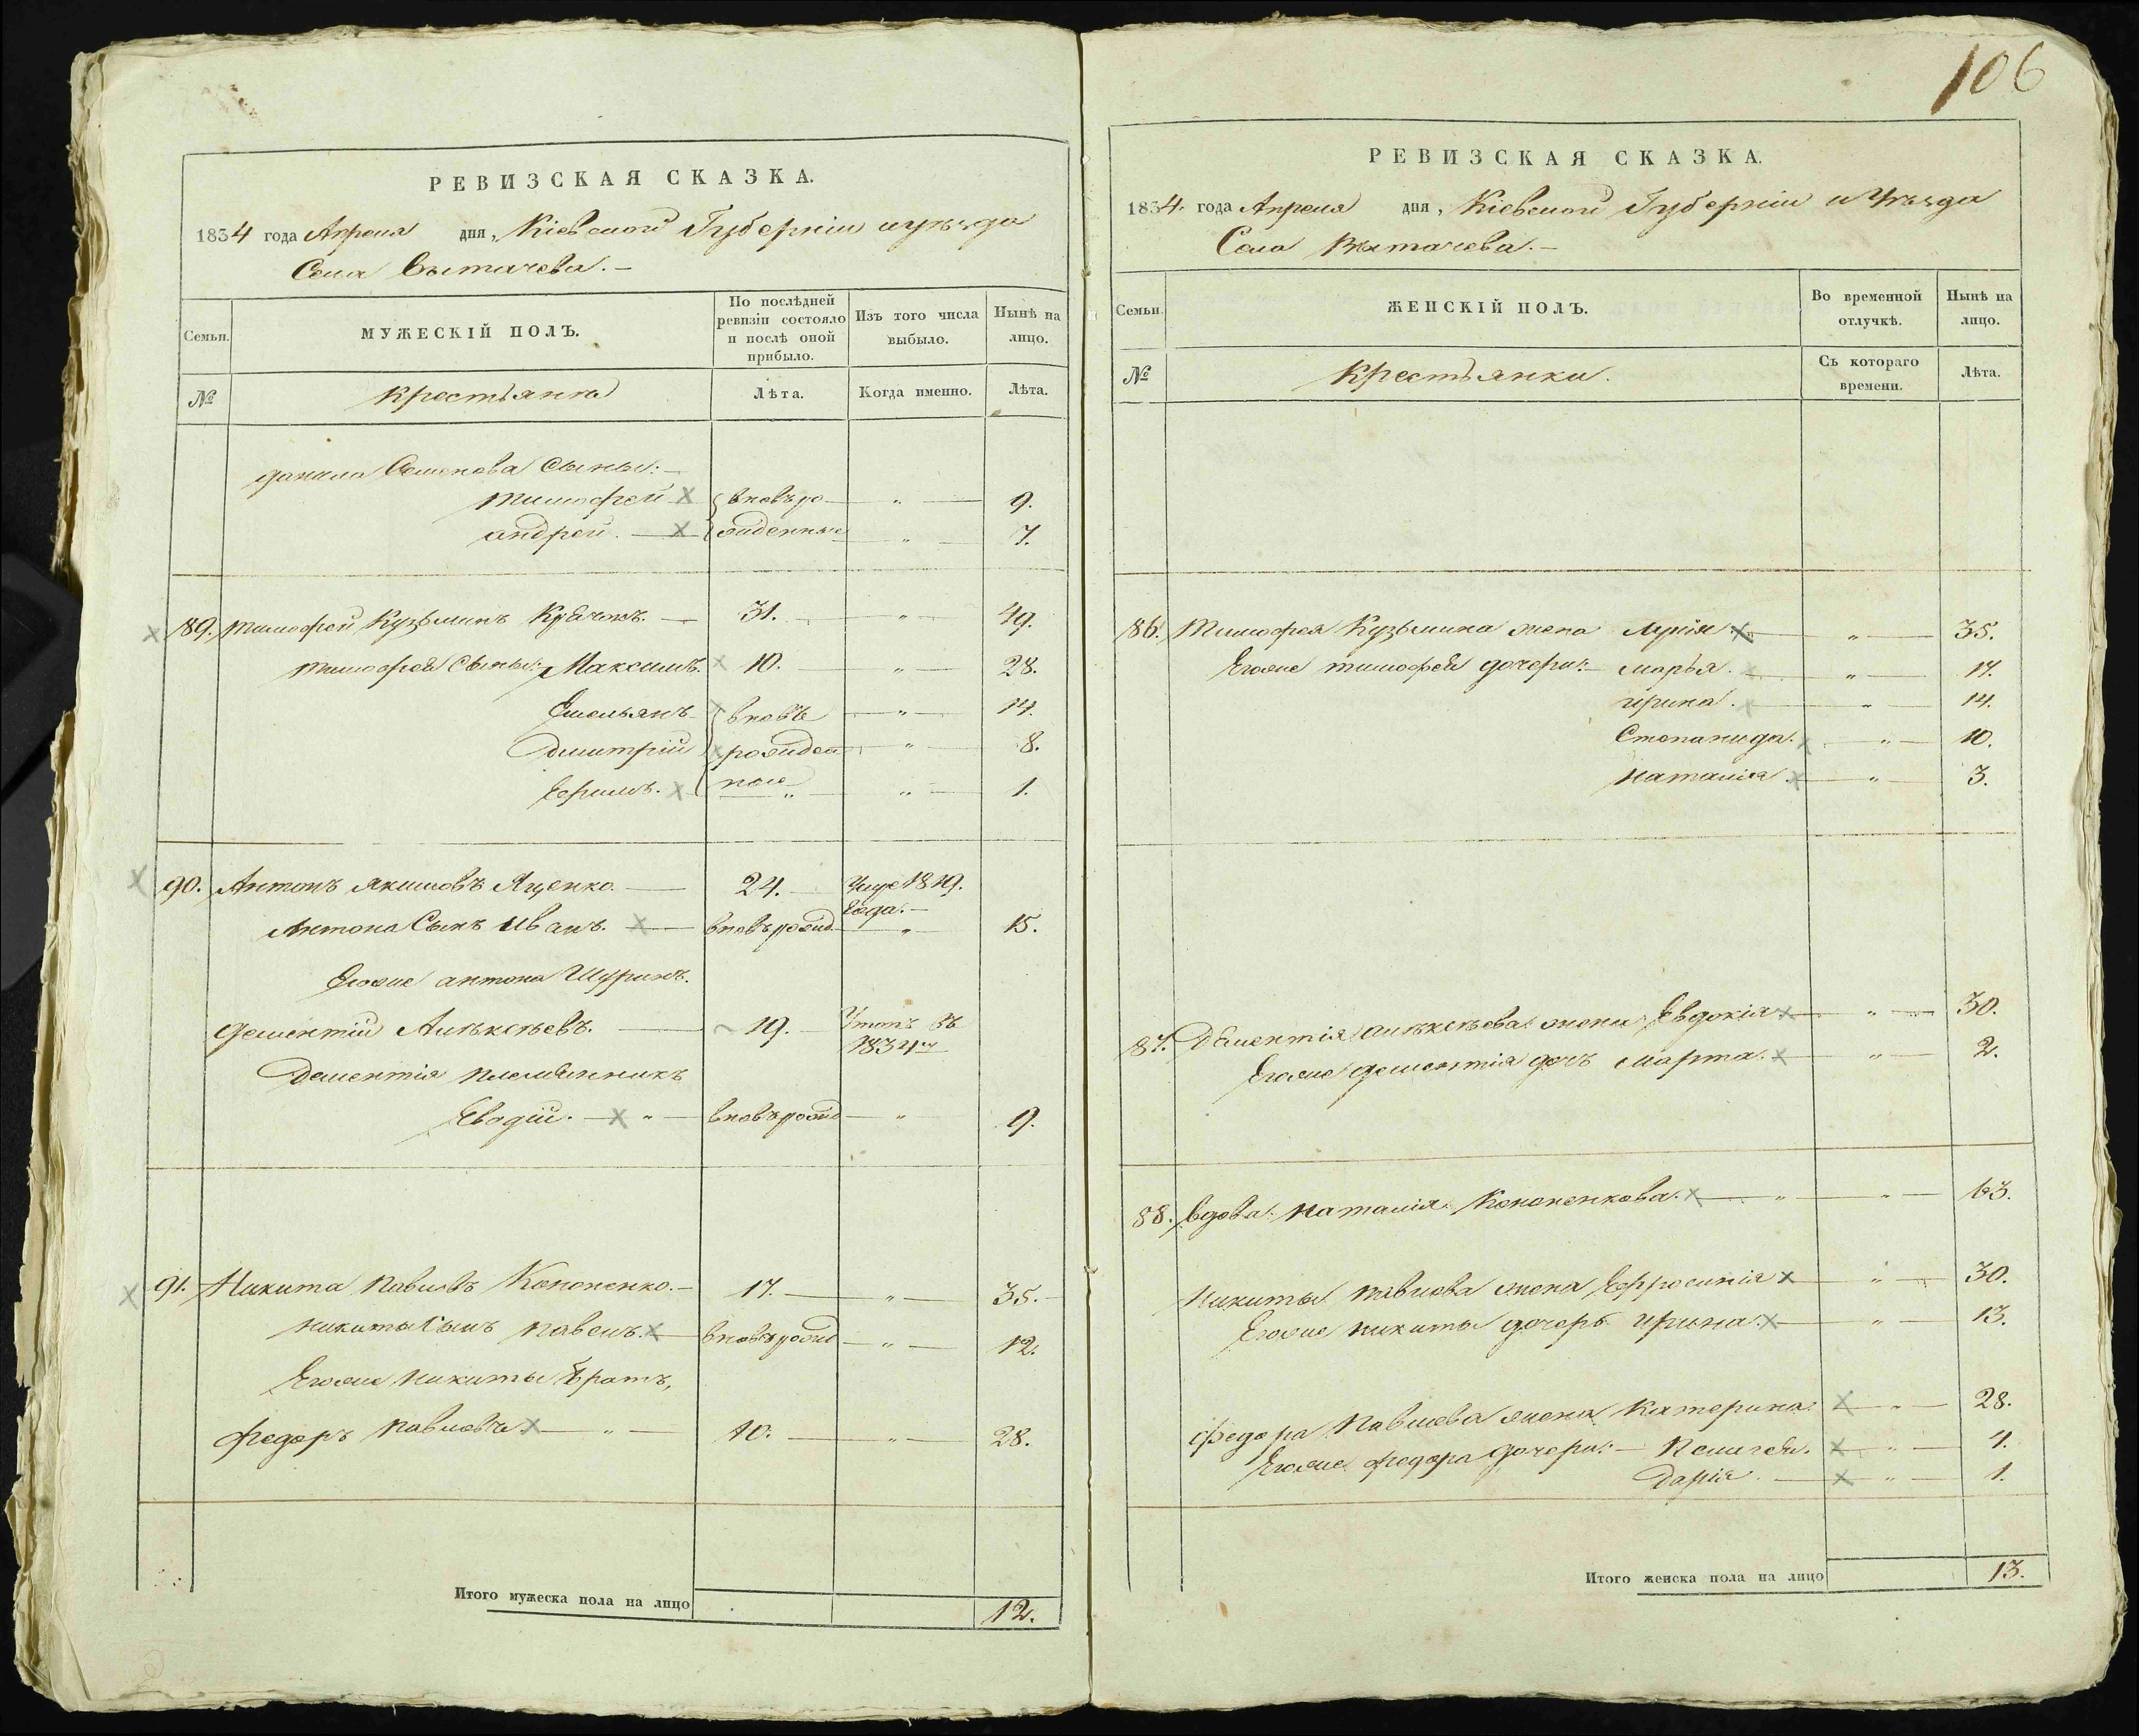 РЕВИЗСКАЯ СКАЗКА.
1834 года Апреля дня, Кіевской Губерніи и уѣзда
Села Вытачева. —
Семьи.
МУЖЕСКІЙ ПОЛЪ.
По послѣдней ревизіи состояло и послѣ оной прибыло.
Изъ того числа выбыло.
Нынѣ на лицо.
№
Крестьяне
Лѣта.
Когда именно.
Лѣта.
данила Семенова Сыны: —
тимофей х вновь ро — " — 9.
андрей. — х жденные — " — 7.
х 89. тимофей Кузьминъ — 31. — " — 49.
тимофея Сыны: Максимъ. х 10. — " — 28.
Емельянъ х вновь — " — 14.
дмитрій х рожден — " — 8.
Ефимъ. х ные " — " — 1.
х 90. Антонъ Якимовъ Яценко. — 24. — 1819.
года. —
Антона Сынъ Иванъ. х — вновь рожд — " 15.
Егоже антона Шуринъ.
дементій Алѣксѣевъ. — 19. — Умеръ въ
1834мъ
дементія племянникъ
Евдоkій. — х " — вновь рожд — " 9.
х 91. Никита Павловъ Кононенко. — 17. — " — 35. —
никиты Сынъ павелъ. х — вновь рожд — " — 12.
Егоже никиты братъ,
федоръ павловъ х — " — 10. — " — 28.
Итого мужеска пола на лицо 12.
106
РЕВИЗСКАЯ СКАЗКА.
1834. года Апреля дня, Кіевской Губерніи и Уѣзда
Села Вытачева. —
Семьи.
ЖЕНСКІЙ ПОЛЪ.
Во временной отлучкѣ.
Нынѣ на лицо.
№
Крестьянки.
Съ котораго времени.
Лѣта.
86. Тимофея Кузьмина жена х — " — 35.
Егоже тимофея дочери: — марья. х — " — 17.
ирина. х — " — 14.
Степанида. х — " — 10.
наталия х — " — 3.
87. Дементія алѣксѣева жена Евдокія х — " — 30.
Егоже дементія дочь марта. х — " — 2.
88. вдова наталія Кононенкова. х — " — " — 63.
Никиты павлова жена Ефросинія х — " — 30.
Егоже никиты дочерь ирина. х — " — 13.
федора Павлова жена катерина: х — " — 28.
Егоже федора дочери: — х — " — 4.
дарія. — х — " — 1.
Итого женска пола на лицо 13.